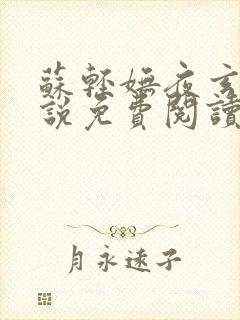 蘇輕嫵夜玄
說免費閱讀
月永遠子